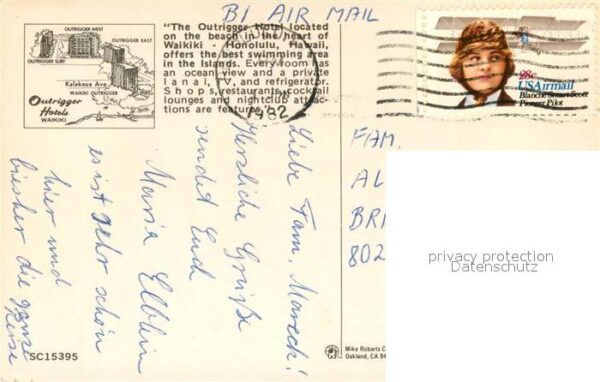 BY AIR MAIL
OUTRIGGER WEST
OUTRIGGER EAST
OUTRIGGER SURF
Kalakaua Ave.
WAIKIKI OUTRIGGER
Outrigger
Hotels
WAIKIKI
"The Outrigger Hotel located
on the beach in the heart of
Waikiki - Honolulu, Hawaii,
offers the best swimming area
in the Islands. Every room has
an ocean view and a private
lanai, TV, and refrigerator.
Shops, restaurants, cocktail
lounges and nightclub attrac-
tions are featured."
1982
28c
USAirmail
Blanche Stuart Scott
Pioneer Pilot
Liebe Fam. Mareck!
Herzliche Grüße
sendet Euch
Maria
es ist sehr schön
hier und
bisher die ganze
Reise
FAM.
AL
BRE
802
privacy protection
Datenschutz
SC15395
Mike Roberts C
Oakland, CA 94